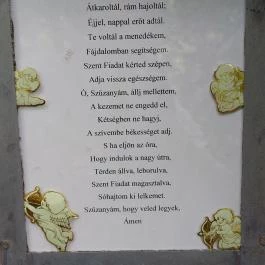 Átkaroltál, rám hajoltál;
Éjjel, nappal erőt adtál.
Te voltál a menedékem,
Fájdalomban segítségem.
Szent Fiadat kérted szépen,
Adja vissza egészségem.
Ó, Szűzanyám, állj mellettem,
A kezemet ne engedd el,
Kétségben ne hagyj,
A szívembe békességet adj.
S ha eljön az óra,
Hogy indulok a nagy útra,
Térden állva, leborulva,
Szent Fiadat magasztalva,
Sóhajtom ki lelkemet.
Szűzanyám, hogy veled legyek,
Ámen